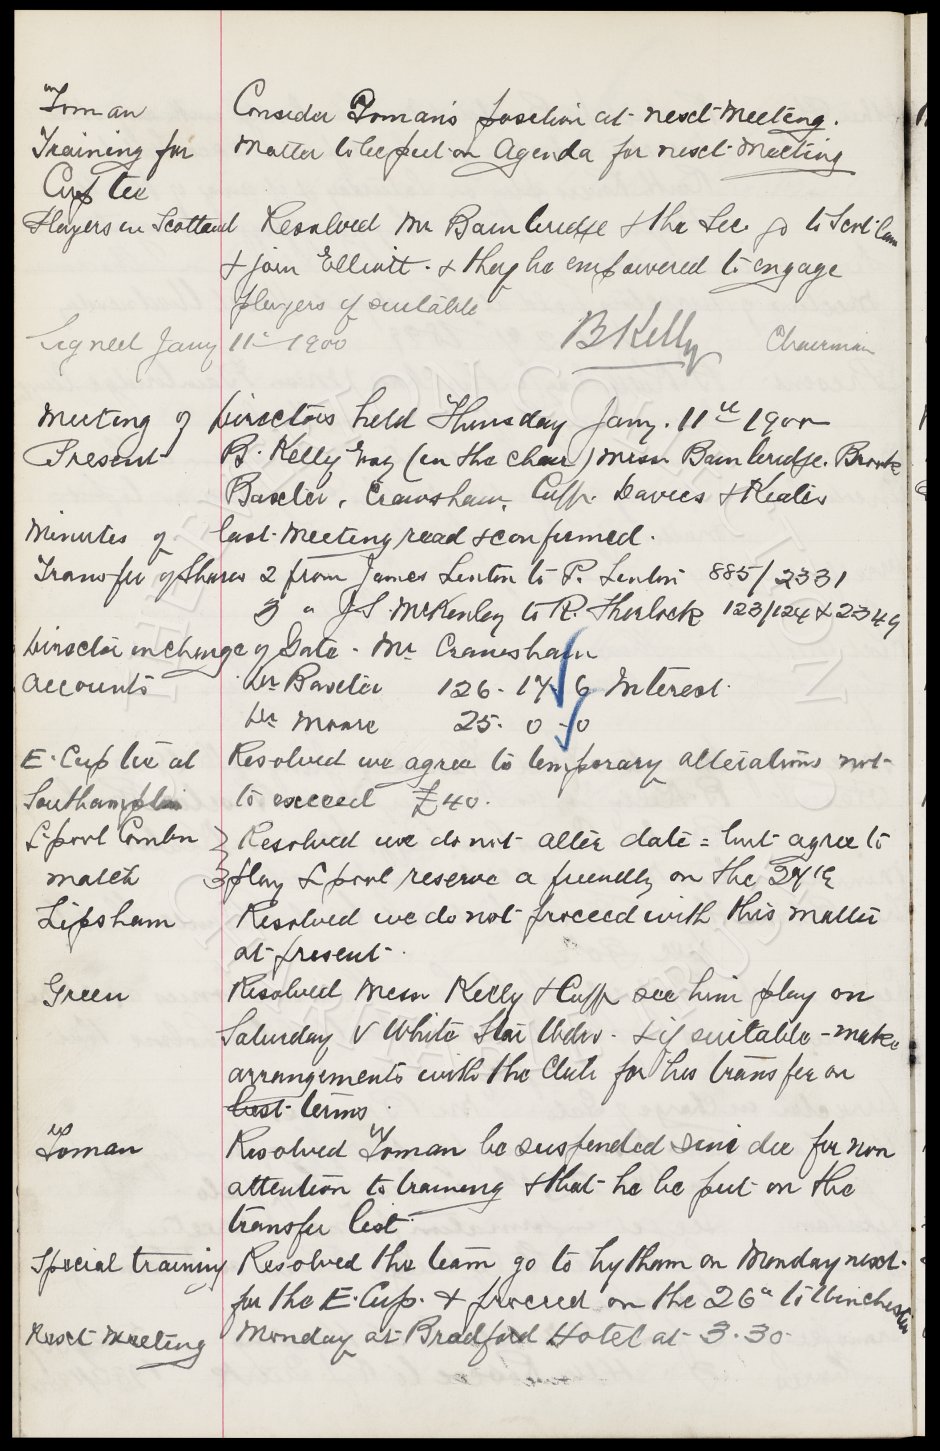 Toman Consider Toman's position at next Meeting.
Training for Matter to be put on Agenda for next Meeting
Cup tee
Players in Scotland Resolved Mr Bainbridge & the Sec. go to
& join Elliott. & they be empowered to engage
players if suitable
Signed Jany 11th 1900 B Kelly Chairman
Meeting of Directors held Thursday Jany. 11th 1900
Present B. Kelly Esq (in the chair) Messrs Bainbridge. Brooke
Baxter, Crawshaw, Cuff. Davies & Keates
Minutes of last Meeting read & confirmed.
Transfer of Shares 2 from James Linton to P. Linton 885/2331
3 " J S. McKenley to R. Thurlock 123/124 & 2349
Director in charge of Gate - Mr Crawshaw
Accounts Dr Baxter 126. 17. 6 Interest.
Dr Moore 25. 0 - 0
E. Cup tie at Resolved we agree to temporary alterations not
Southampton to exceed £40.
L'pool Combn Resolved we do not alter date = but agree to
match play L'pool reserve a friendly on the
Lipsham Resolved we do not proceed with this matter
at present.
Green Resolved Messrs Kelly & Cuff see him play on
Saturday V White Star Wdrs. & if suitable - make
arrangements with the Club for his transfer on
best terms.
Toman Resolved Toman be suspended sine die for non
attention to training & that he be put on the
transfer list
Special training Resolved the team go to Lytham on Monday next.
for the E. Cup. & proceed on the 26th to Winchester
Next Meeting Monday at Bradford Hotel at 3.30